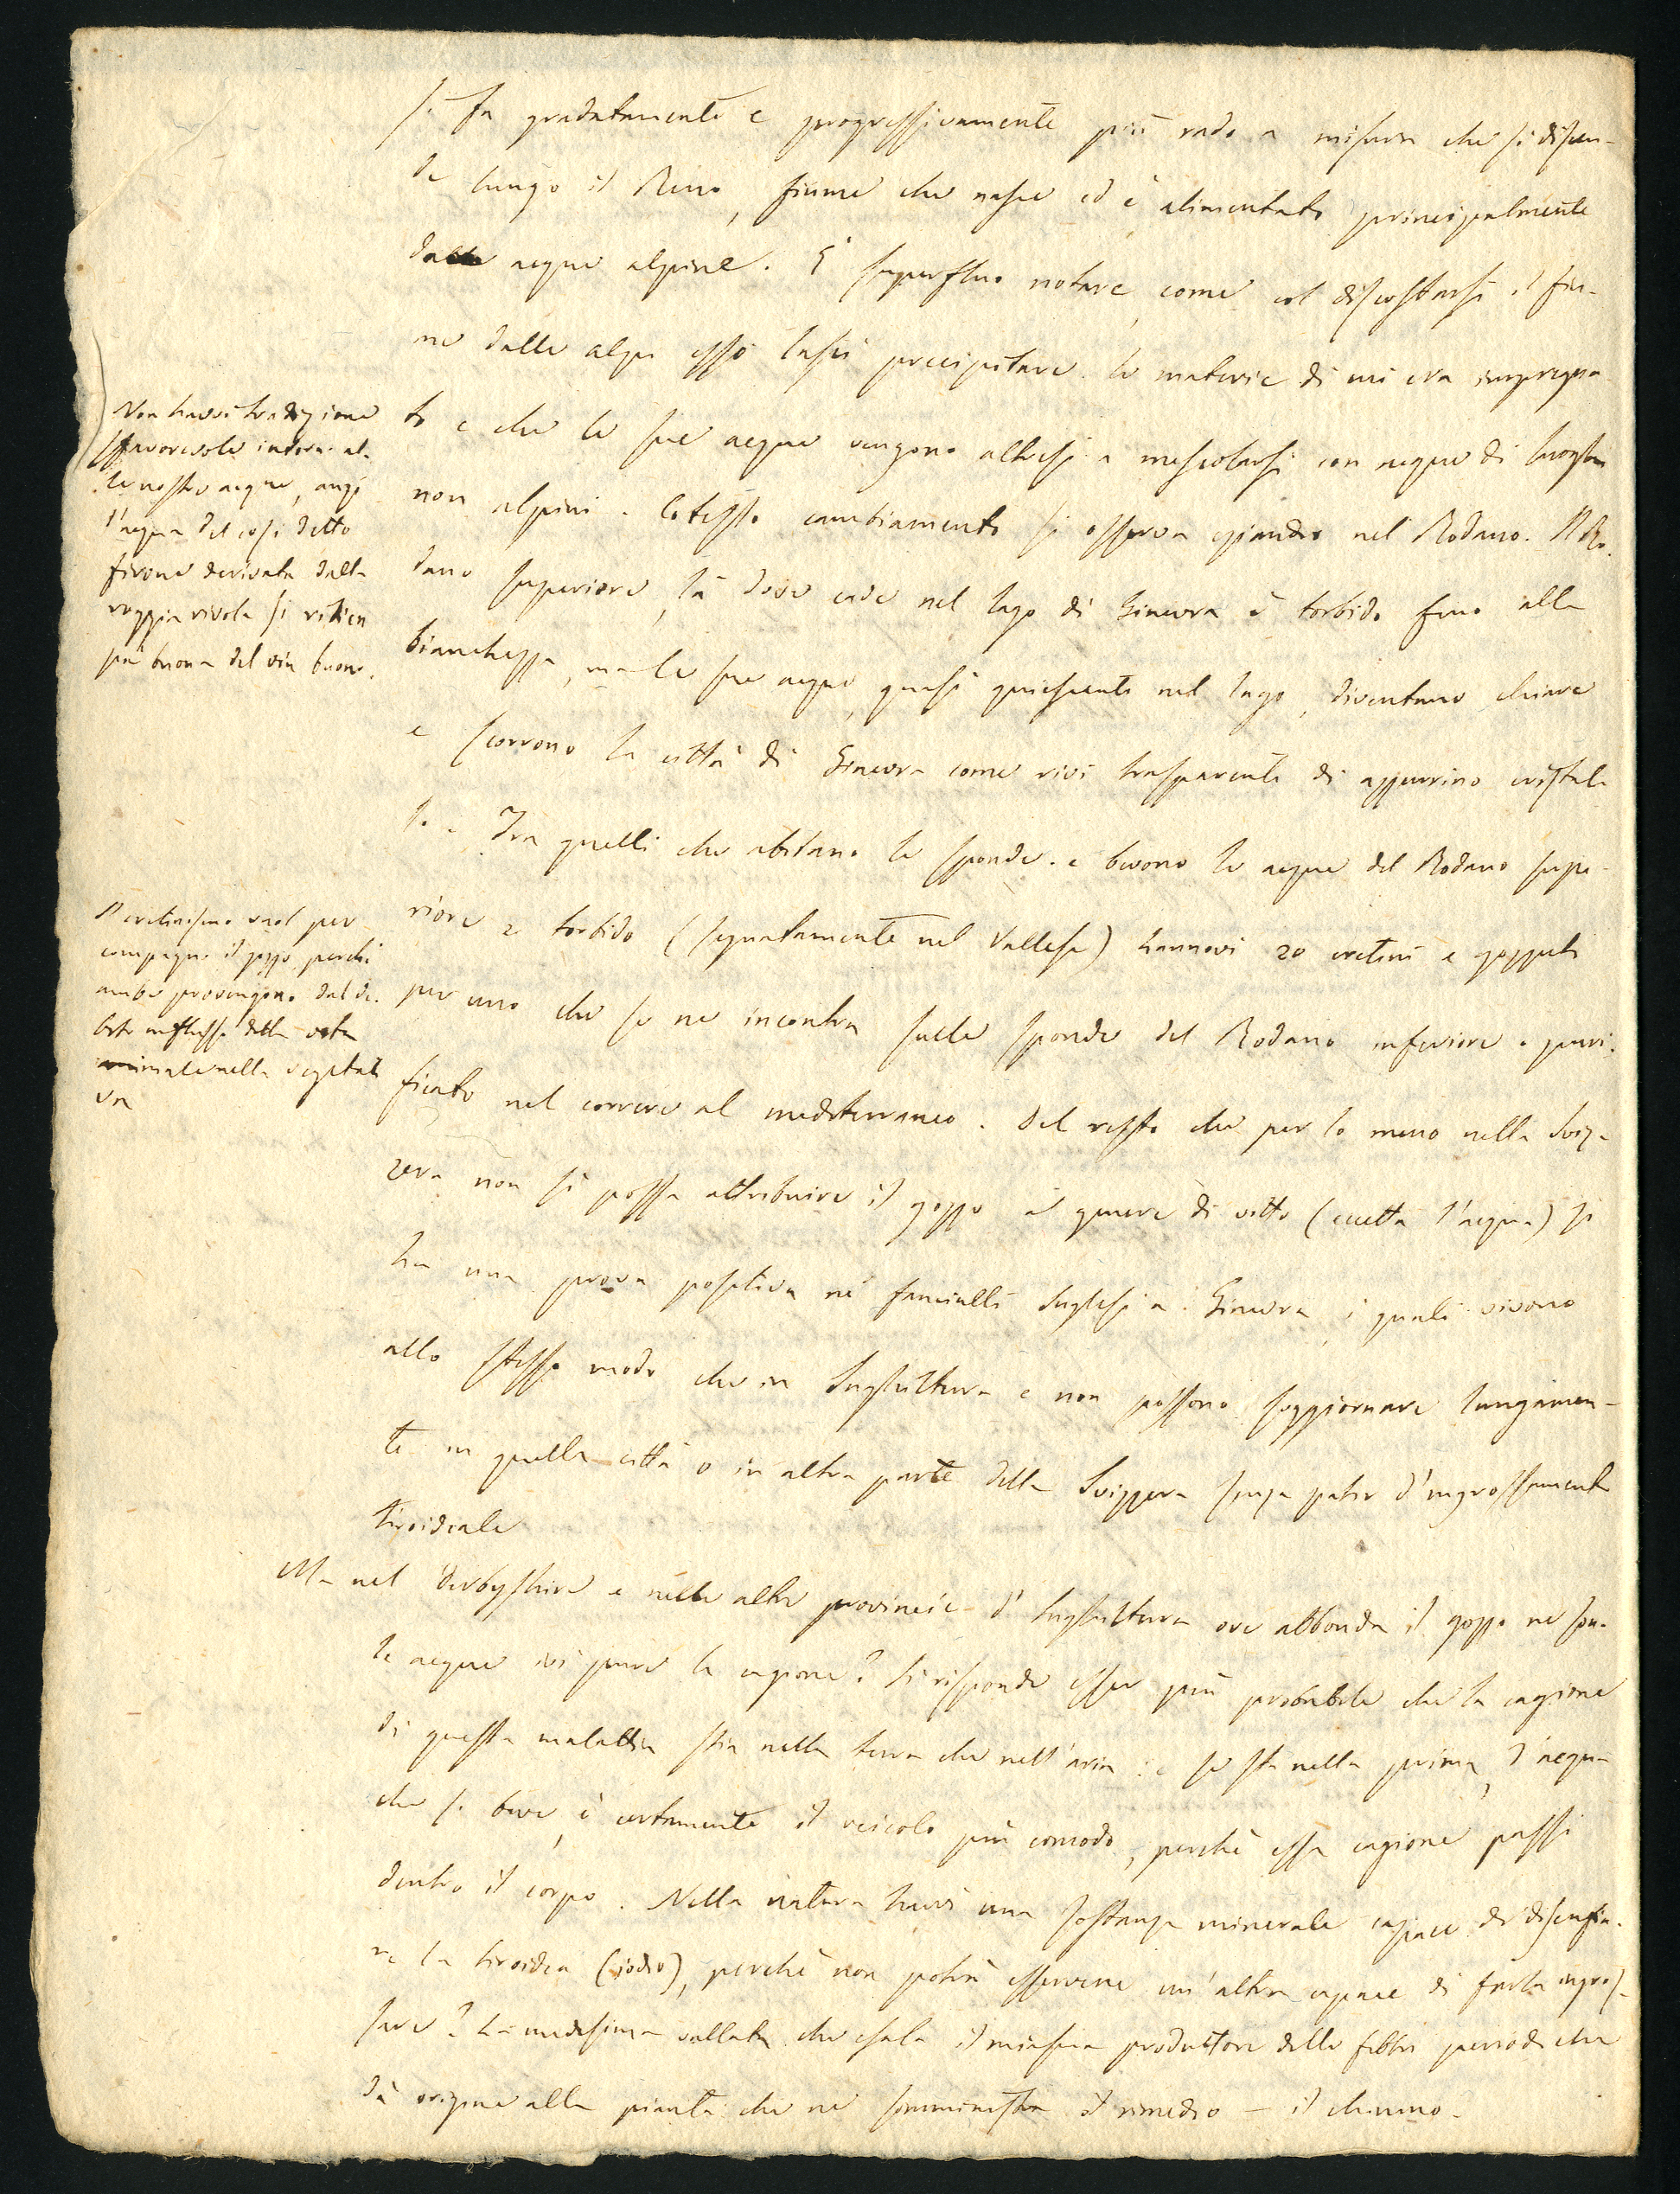 si fa gradatamente e progressivamente più rado a misura che si discen-
de lungo il Reno, fiume che nasce ed è alimentato principalmente
dalle acque alpine. È superfluo notare come col discostarsi il fiu-
me dalle alpi esso lasci precipitare le materie di cui era impregna
to e che le sue acque vengono altresì a mescolarsi con acque di luoghi
non alpini. Cotesto cambiamento si osserva eziandio nel Rodano. Il Ro-
dano superiore, là dove cade nel lago di Ginevra è torbido fino alla
bianchezza, ma le sue acque, quasi quiescenti nel lago, diventano chiare
e scorrono la città di Ginevra come rivi trasparenti di azzurrino cristal-
lo. Tra quelli che abitano le sponde e bevono le acque del Rodano supe-
riore e torbido (segnatamente nel Vallese) hannovi 20 cretini e gozzuti
per uno che se ne incontra sulle sponde del Rodano inferiore o puri-
ficato nel correre al mediterraneo. Del resto che per lo meno nella Sviz-
zera non si possa attribuire il gozzo al genere di vitto (eccetto l'acqua) si
ha una prova positiva ne' fanciulli Inglesi a Ginevra, i quali vivono
allo stesso modo che in Inghilterra e non possono soggiornare lungamen-
te in quella città o in altra parte della Svizzera senza patir d'ingrossamento
tiroideale
Ma nel Derbyshire e nelle altre provincie d'Inghilterra ove abbonda il gozzo ne son
le acque ivi pure la cagione? Si risponde esser più probabile che la cagione
di questa malattia stia nella terra che nell'aria: e se sta nella prima, l'acqua
che si beve, è certamente il veicolo più comodo, perchè essa cagione passi
dentro il corpo. Nella natura havvi una sostanza minerale capace di disenfia-
re la tiroidea (iodio), perchè non potrà esservene un'altra capace di farla ingros-
sare? La medesima vallata che esala il miasma produttore delle febbri periodiche
dà origine alla pianta che ne somministra il rimedio – il chinino.
Non havvi tradizione
sfavorevole intorno al-
le nostre acque, anzi
l'acqua del così detto
firone derivata dalla
roggia rivola si ritien
più buona del vin buono.
Il cretinismo vuol per
compagno il gozzo perchè
ambo provengono dal de-
bole influsso della vita
animale nella vegetati
va